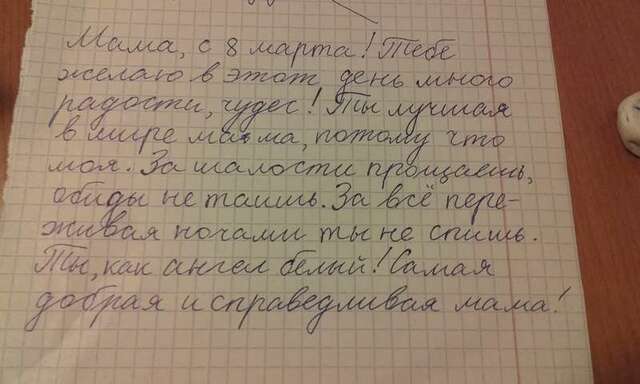 Мама, с 8 марта! Тебе
желаю в этот день много
радости, чудес! Ты лучшая
в мире мама, потому что
моя. За шалости прощаешь,
обиды не таишь. За всё пере-
живая ночами ты не спишь.
Ты, как ангел белый! Самая
добрая и справедливая мама!